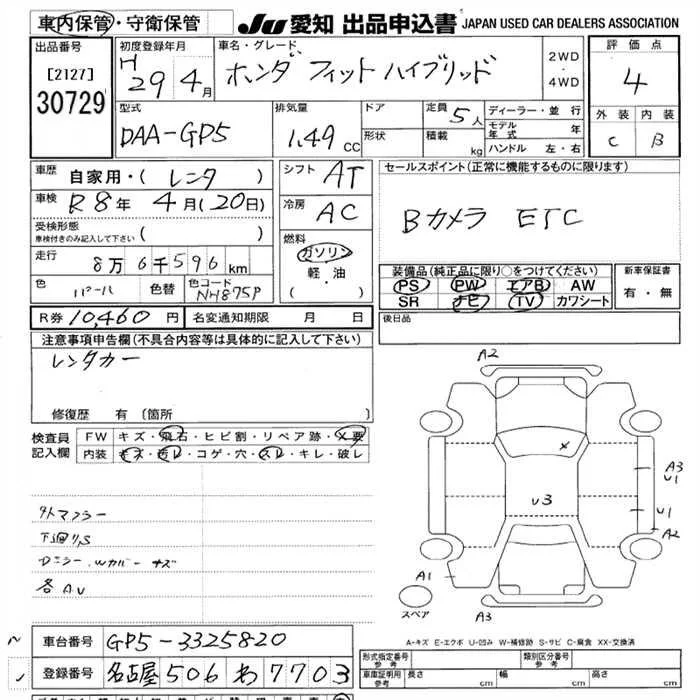 車内保管・守衛保管
JU 愛知 出品申込書 JAPAN USED CAR DEALERS ASSOCIATION
出品番号
[2127]
30729
初度登録年月
H 29年 4月
車名・グレード
ホンダ フィットハイブリッド
2WD
・
4WD
評価点
4
外装 内装
C B
型式
DAA-GP5
排気量
1.49 CC
ドア
形状
定員 5人
積載 kg
ディーラー・並行
モデル年式 年
ハンドル 左・右
車歴
自家用・( レンタ )
車検 R8年 4月(20日)
受検形態
車検付きのみ記入して下さい ( )
走行
8万6千596km
色 パール 色替 色コード NH875P
シフト AT
冷房 AC
燃料
ガソリン
軽・油
( ・ )
セールスポイント(正常に機能するものに限ります)
Bカメラ ETC
装備品(純正品に限り○をつけてください)
PS PW エアB AW
SR ナビ TV カワシート
新車保証書
有・無
後日品
R券 10,460円 名変通知期限 月 日
注意事項申告欄(不具合内容等は具体的に記入して下さい)
レンタカー
修復歴 有 〔箇所
検査員
記入欄
FW キズ・飛石・ヒビ割・リペア跡・X要
内装 キズ・汚レ・コゲ・穴・スレ・キレ・破レ
外マフラー
下廻りS
Dミラー、Wカバー キズ
各AU
A2
X
U3
A3
U1
U1
A2
A1
スペア
A3
A-キズ E-エクボ U-凹み W-補修跡 S-サビ C-腐食 XX-交換済
車台番号 GP5-3325820
登録番号 名古屋 506 わ 7703
形式指定番号
参考
類別区分番号
参考
車庫証明用
参考
長さ cm 幅 cm 高さ cm